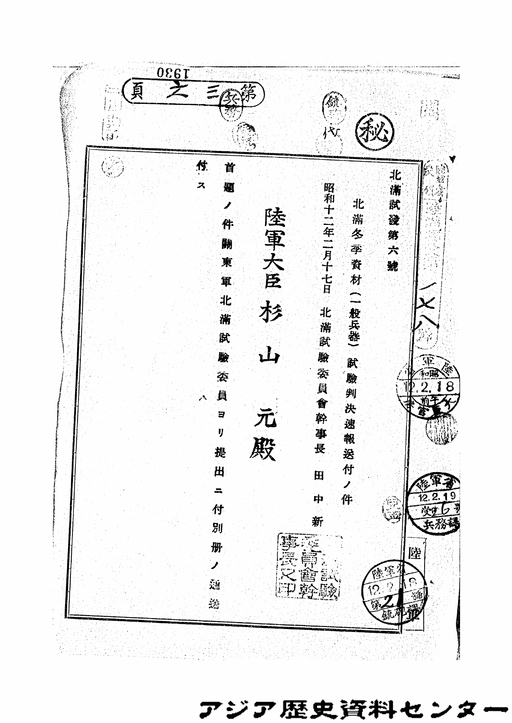 1930
第三之頁
秘
一七八
北滿試發第六號
北滿冬季資材(一般兵器)試驗判決速報送付ノ件
昭和十二年二月十七日 北滿試驗委員會幹事長 田中新
陸軍大臣 杉山 元殿
首題ノ件關東軍北滿試驗委員ヨリ提出ニ付別册ノ通送
付ス
陸軍
12.2.18
陸軍省
12.2.19
兵務課
陸軍省
12.2.18
第21
陸
アジア歴史資料センター